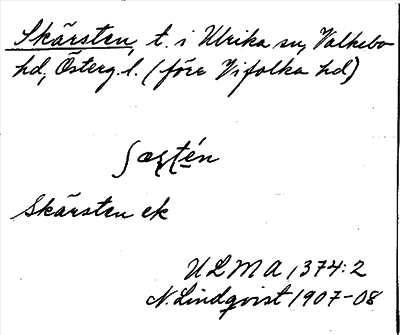 Skärsten, t. i Ulrika sn, Valkebo
hd, Österg. l. (förr Vifolka hd)
ʃæʂtén
Skärsten ek
ULMA, 374:2
N. Lindqvist 1907-08